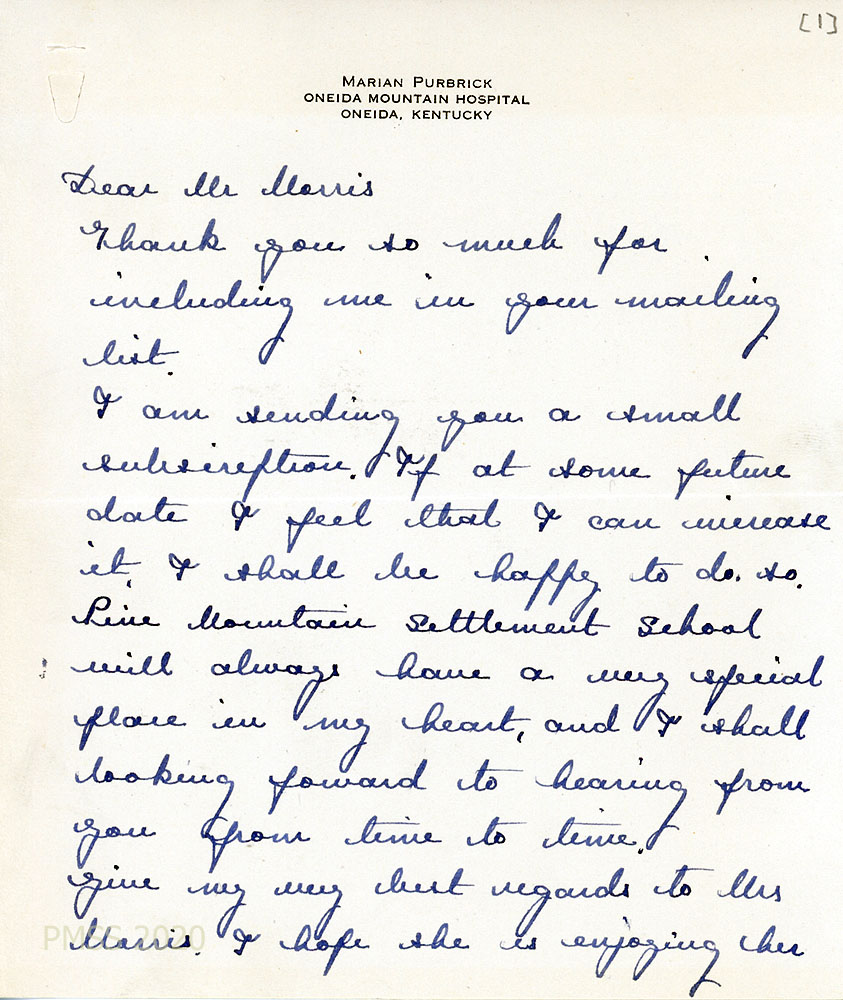 [1]
MARIAN PURBRICK
ONEIDA MOUNTAIN HOSPITAL
ONEIDA, KENTUCKY
Dear Mr Morris
Thank you so much for
including me in your mailing
list.
I am sending you a small
subscription. If at some future
date I feel that I can increase
it, I shall be happy to do so.
Pine Mountain Settlement School
will always have a very special
place in my heart, and I shall
looking foward to hearing from
you from time to time.
Give my very best regards to Mrs
Morris. I hope she is enjoying her
PMSS 2020